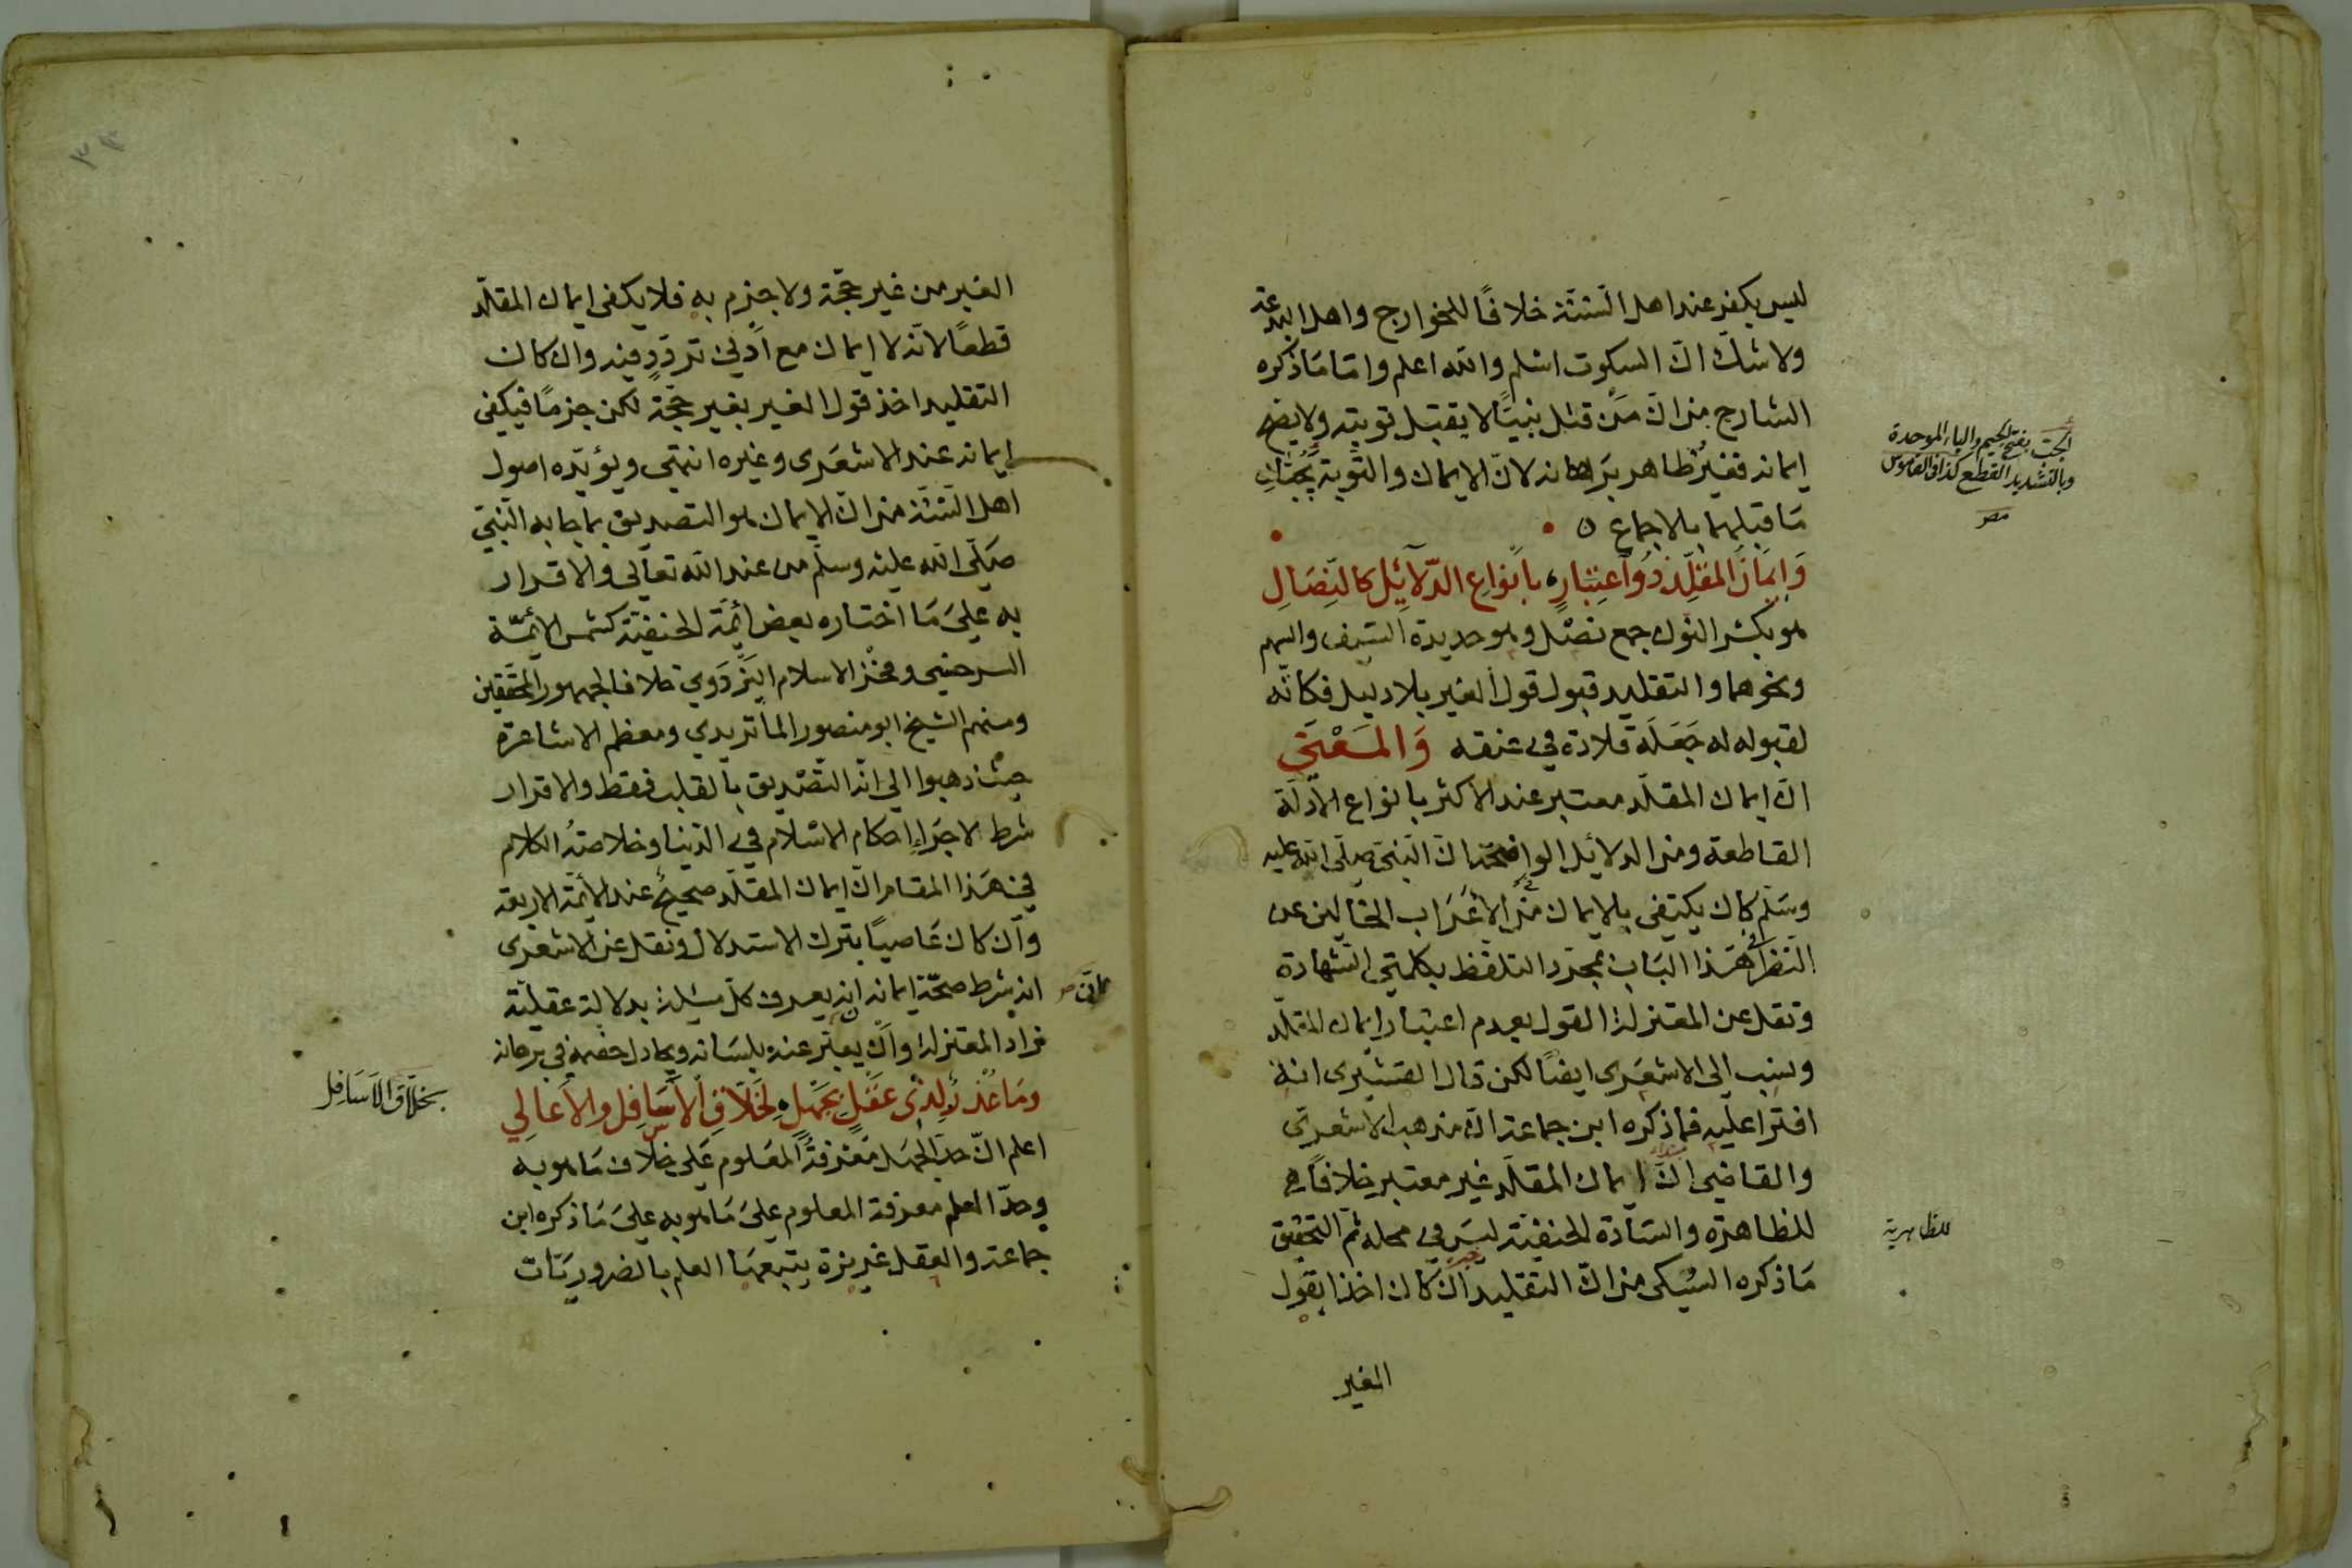 ليس بكفر عند اهل السنّة خلافًا للخوارج واهل البدعة
ولا شك انّ السكوت اسلم والله اعلم وامّا مَا ذكره
الشارح من انّ مَن قتل نبيّا لا يقبل توبته ولا يصح
ايمانه فغير ظاهر برهانه لانّ الايمان والتوبة يجبّان
مَا قبلهما بالاجماع ه
وَاِيمَانُ المقلِّد ذُو اعتِبَارٍ ٥ بأنواعِ الدّلآئِلِ كالنِّصَالِ
هو بكسر النون جمع نصْل وهو حديدة السّيف والسهم
ونحوهما والتقليد قبول قول الغير بلا دليل فكانّه
لقبوله له جَعَلَه قلادة في عنقه وَالمَعْنَى
انّ ايمان المقلّد معتبر عند الاكثر بانواع الادلّة
القاطعة ومن الدلائل الواضحة ان النبيّ صلّى الله عليه
وسَلّم كان يكتفى بالايمان من الأعْرَاب الخالين عن
النظر في هَذا البَاب بمجرّد التلفّظ بكلمتي الشهادة
ونقل عن المعتزلة القول بعدم اعتبار ايمان المقلّد
ونسب الى الاشعَري ايضًا لكن قال القشيرى انه
افترا عليه فما ذكره ابن جماعة انّ مذهب الاشعريّ
والقاضي انّ ايمان المقلّد غير معتبر خلافًا
للظاهرة والسّادة الحنفيّة ليسَ في محله ثم التحقيق
مَا ذكره السّبكى من انّ التقليد ان كان اخذا بقول
الغير
الجبّ بفتح الجيم والباء الموحدة
وبالتشديد القطع كذا في القاموس
للظاهرية
الغير من غير حجّة ولا جزم به فلا يكفى ايمان المقلّد
قطعًا لانّه لا ايمان مع أدنى تردّدٍ فيه وان كان
التقليد اخذ قول الغير بغير حجّة لكن جزمًا فيكفى
ايمانه عند الاشعَرى وغيره انتهى ويؤيّده اصول
أهل السّنّة من انّ الايمان هو التصديق بما جا به النّبيّ
صَلّى الله عليه وسلّم من عند الله تعالى والاقرار
به على مَا اختاره بعض أئمّة الحنفيّة كشمس الائمّة
السرخسي وفخر الاسلام البَزدَوي خلافا لجمهور المحققين
ومنهم الشيخ ابو منصور الماتريدي ومعظم الاشاعرة
حيث ذهبوا الى انّه التّصْديق بالقلب فقط والاقرار
شرط لاجرَاءِ احكام الاسْلام في الدّنيا وخلاصة الكلام
في هَذا المقام انّ ايمان المقلّد صحيحٌ عند الأئمّة الاربعة
وان كان عَاصيًا بترك الاستدلال ونقل عن الاشعَرى
انّ شرط صحّة ايمانه ان يعرف كلّ مسئلة بدلالة عقليّة
زاد المعتزلة وان يعبّر عنه بلسَانه ويجادل خصمه في برهانه
ومَا عُذرٌ لِذي عَقلٍ بجَهلٍ ٥ لِخَلّاقِ الأَسَافِل والأعَالِي
اعلم انّ حدّ الجهل مَعْرفةُ المعَلوم عَلى خلاف مَا هو به
وحدّ العلم معرفة المعلوم على مَا هو به على مَا ذكره ابن
جماعة والعقل غريزة يتبعهَا العلم بالضروريّات
بخَلّاقِ الأَسَافِل